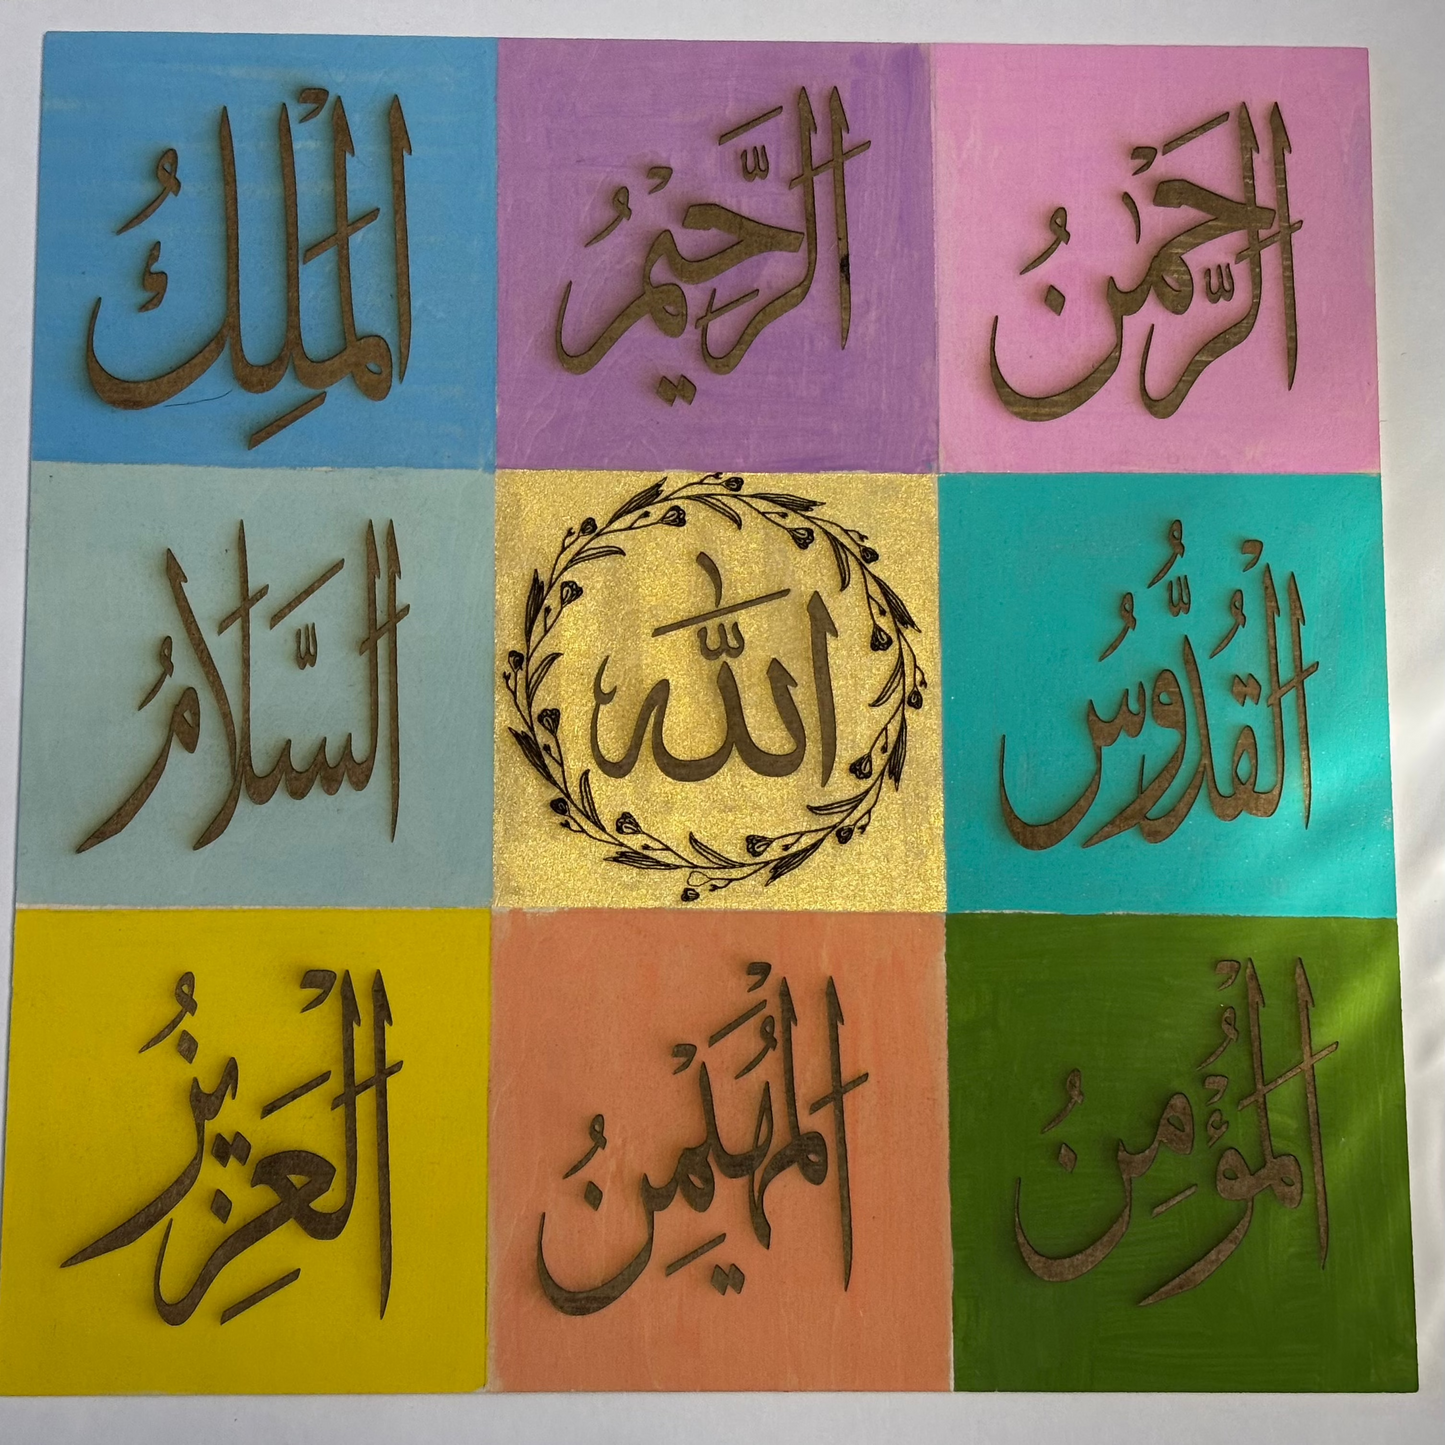 الرَّحْمٰنُ
الرَّحِيْمُ
الْمَلِكُ
الْقُدُّوْسُ
اللّٰه
السَّلَامُ
الْمُؤْمِنُ
الْمُهَيْمِنُ
الْعَزِيزُ